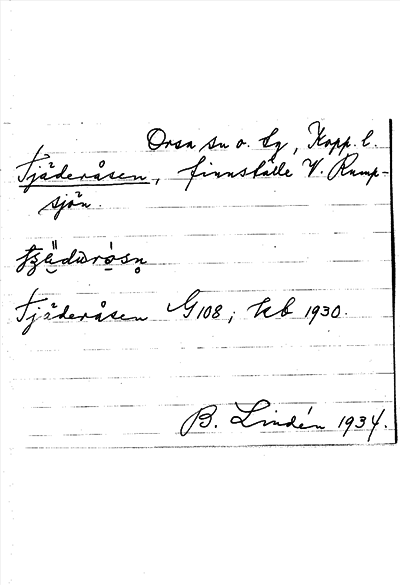 Orsa sn o. tg, Kopp. l.
Tjäderåsen, finnställe V. Rump-
sjön.
Tjäderåsen G 108; kb 1930.
B. Lindén 1934.